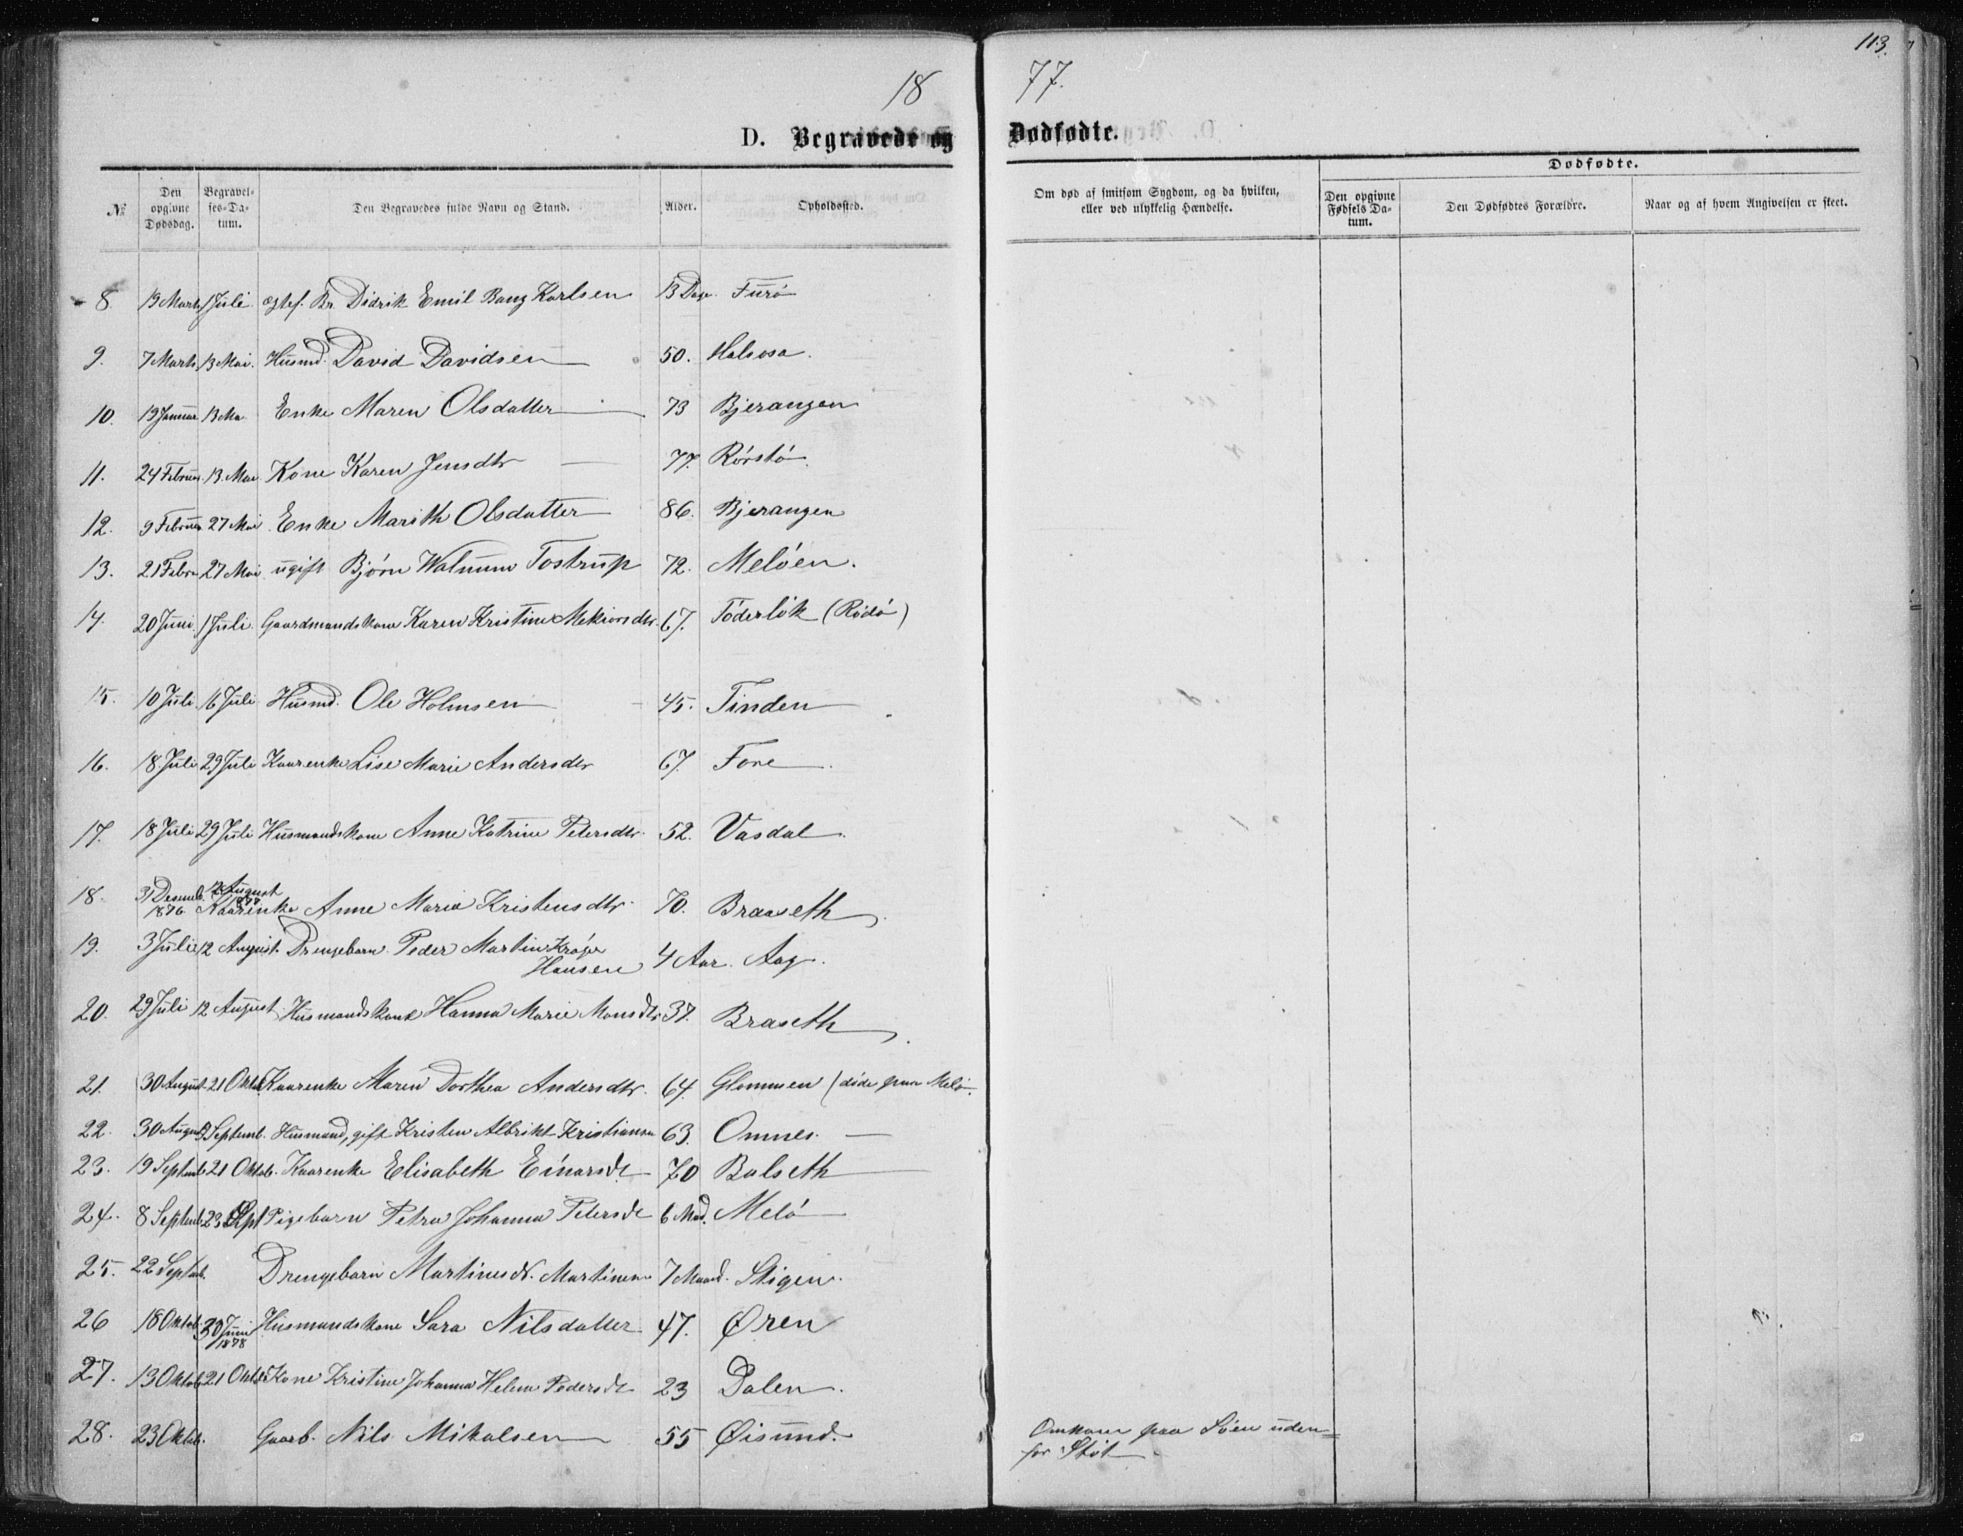 113.
18 77.
D. Begravede og Dødfødte.
№ | Den opgivne Dødsdag. | Begravelses-Datum. | Den Begravedes fulde Navn og Stand. | Alder. | Opholdssted. | Om død af smitsom Sygdom, og da hvilken, eller ved ulykkelig Hændelse. | Dødfødte. | Den opgivne Fødsels Datum. | Den Dødfødtes Forældre. | Naar og af hvem Angivelsen er skeet.
8. 13 Marts 1 Juli ægtef. Br. Didrik Emil Bang Karlsen 13 Dage. Furö
9. 7 Marts 13 Mai. Husmd. David Davidsen 50. Halsosa.
10. 19 Januar 13 Ma Enke Maren Olsdatter 73 Bjerangen
11. 24 Februar. 13. Mai Kone Karen Jensdtr 77. Rörstö.
12. 9 Februar 27 Mai Enke Marith Olsdatter 86. Bjerangen
13. 21 Febru 27 Mai ugift Bjørn Walnum Tostrup 72. Melöen.
14. 20 Juni. 1 Juli. Gaardmandskone Karen Kristine Mekiorsdtr. 67. Töderlök (Rödö)
15. 10 Juli. 16 Juli Husmd. Ole Holmsen 45. Tinden
16. 18. Juli 29 Juli Kaarenke Lise Marie Andersdtr 67. Fore
17. 18 Juli 29 Juli Husmandskone Anne Katrine Petersdtr. 52. Vasdal.
18. 31 Desemb. 1876 12 August 1877 Kaarenke Anne Maria Kristensdtr. 70. Braaseth
19. 3 Juli 12 August. Drengebarn Peder Martin Kröger
Hansen 4 Aar. Aag.
20. 29 Juli 12 August Husmandskone Hanna Marie Monsdtr 37. Braseth
21. 30 August. 21 Oktob. Kaarenke Maren Dorthea Andersdtr. 64. Glommen (döde paa Melö.
22. 30 August 9 Septemb. Husmand, gift Kristen Albrikt Kristiansen 63. Omnes.
23. 19 Septemb 21 Oktob. Kaarenke Elisabeth Einarsdt 70 Balseth
24. 8 Septemb 23 Sept Pigebarn Petra Johanna Petersdt 6 Mnd. Melö
25. 22 Septemb. Drengebarn Martinus N. Martinsen 7 Maaned. Stigen.
26 18 Oktob. 30 Juni 1878 Husmandskone Sara Nilsdatter 47. Øren
27. 13 Oktob 21 Oktob Kone Kristine Johanna Helene Pedersdt 23 Dalen.
28. 23 Oktob. Gaarb. Nils Mikalsen 55 Øisund. Omkom paa Söen uden=
for Stöt.